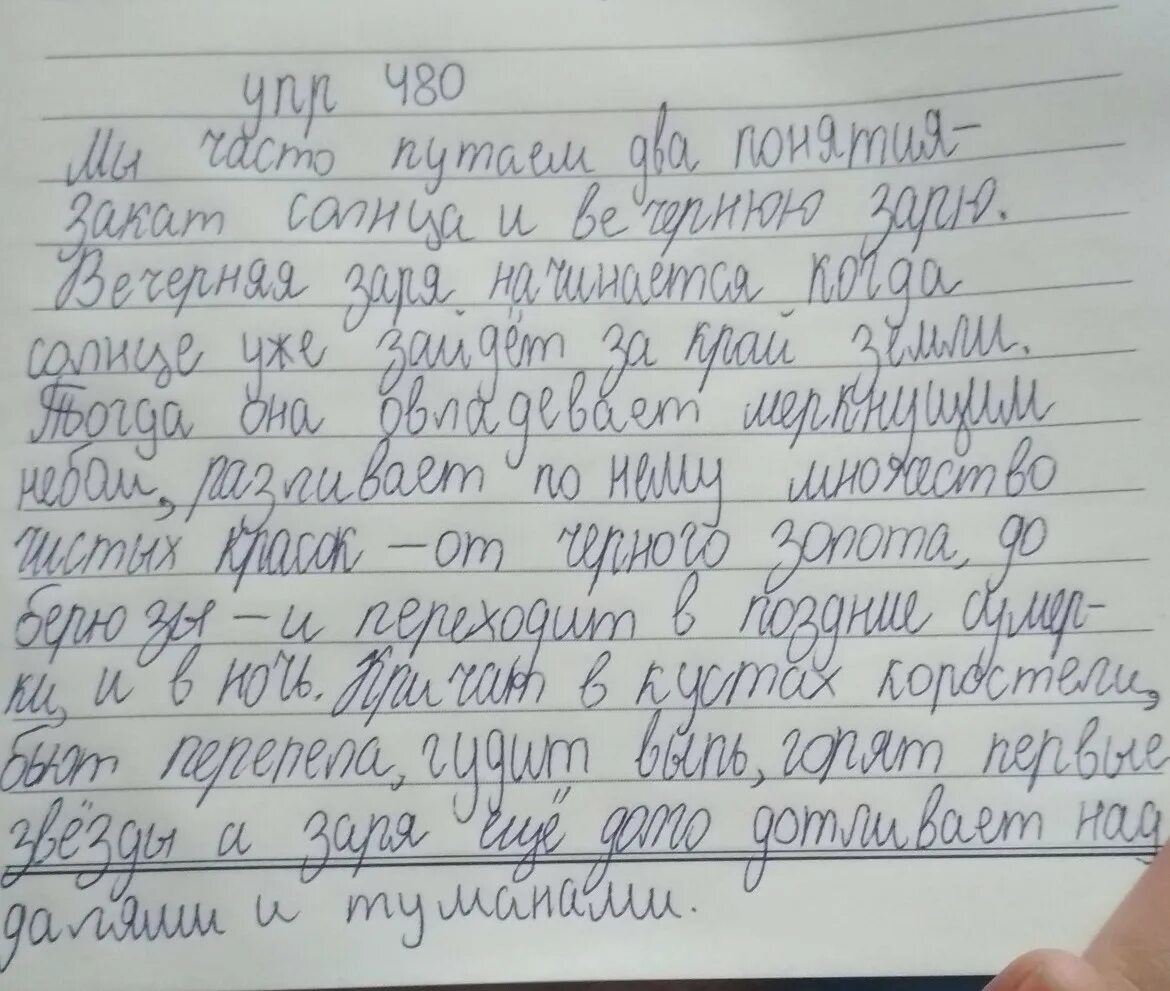 упр 480
Мы часто путаем два понятия-
закат солнца и вечернюю зарю.
Вечерняя заря начинается когда
солнце уже зайдёт за край земли.
Тогда она овладевает меркнущим
небом, разливает по нему множество
чистых красок – от черного золота, до
берюзы – и переходит в поздние сумер-
ки, и в ночь. Кричат в кустах коростели,
бьют перепела, гудит выпь, горят первые
звёзды а заря ещё долго дотливает над
далями и туманами.